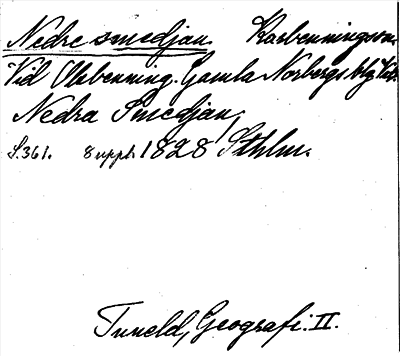 Nedre smedjan. Karbenningsvn.
Vid Olsbenning. Gamla Norbergs blg Vstm.
Nedra Smedjan,
S.361. 8 uppl. 1828 Sthlm.
Tuneld, Geografi. II.